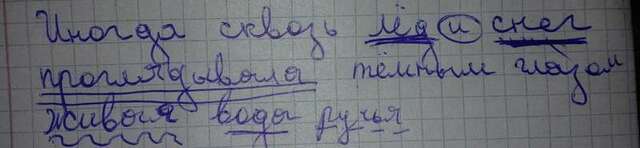 Иногда сквозь лёд и снег
проглядывала тёмным глазом
живая вода ручья